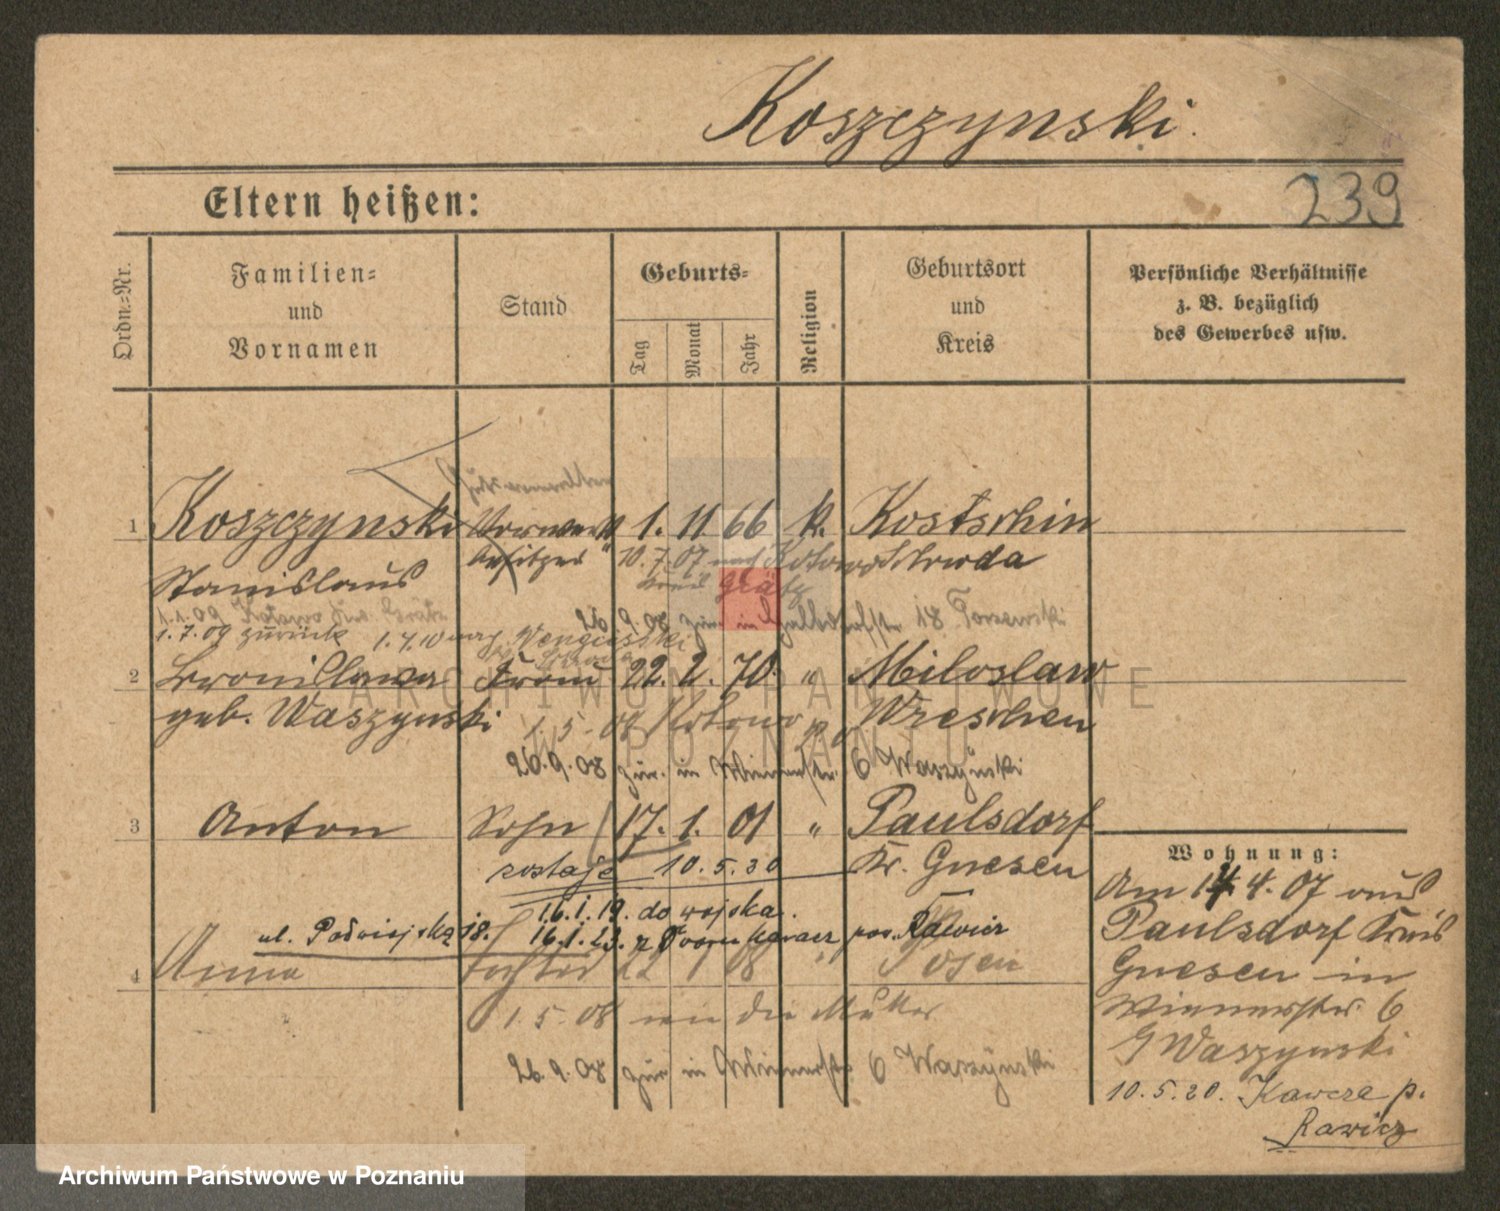 Koszczynski.
239
Eltern heißen:
Ordn.-Nr.
Familien-
und
Vornamen
Stand
Geburts-
Tag
Monat
Jahr
Religion
Geburtsort
und
Kreis
Persönliche Verhältnisse
z. B. bezüglich
des Gewerbes usw.
1 Koszczynski Vorwerks 1. 11 66 k. Kostschin
besitzer 10.7.07 nach Kotowo Schroda
Stanislaus
Kreis Grätz
1.1.09 Kotowo
26.9.08 zur. in 18
1.7.09 zurück 1.7.10 nach
2 Bronislawa Frau 22. 2. 70. " Miloslaw
geb. Waszynski Wreschen
1.5.08 Kotowo
26.9.08 zur. in Wienerstr. 6 Waszynski
3 Anton Sohn 17. 1. 01 " Paulsdorf
Kr. Gnesen
zostaje 10.5.30
16.1.19. do wojska.
ul. Podwiejska 18. 16.1.23. z Rawicz
4 Anna Tochter 22 1 08 " Posen
1.5.08 wie die Mutter
26.9.08 zur in Wienerstr 6 Waszynski
Wohnung:
Am 14.4.07 aus
Paulsdorf Kreis
Gnesen in
Wienerstr. 6
Waszynski
10.5.20. Kawcze p.
Rawicz
ARCHIWUM PAŃSTWOWE
W POZNANIU
Archiwum Państwowe w Poznaniu